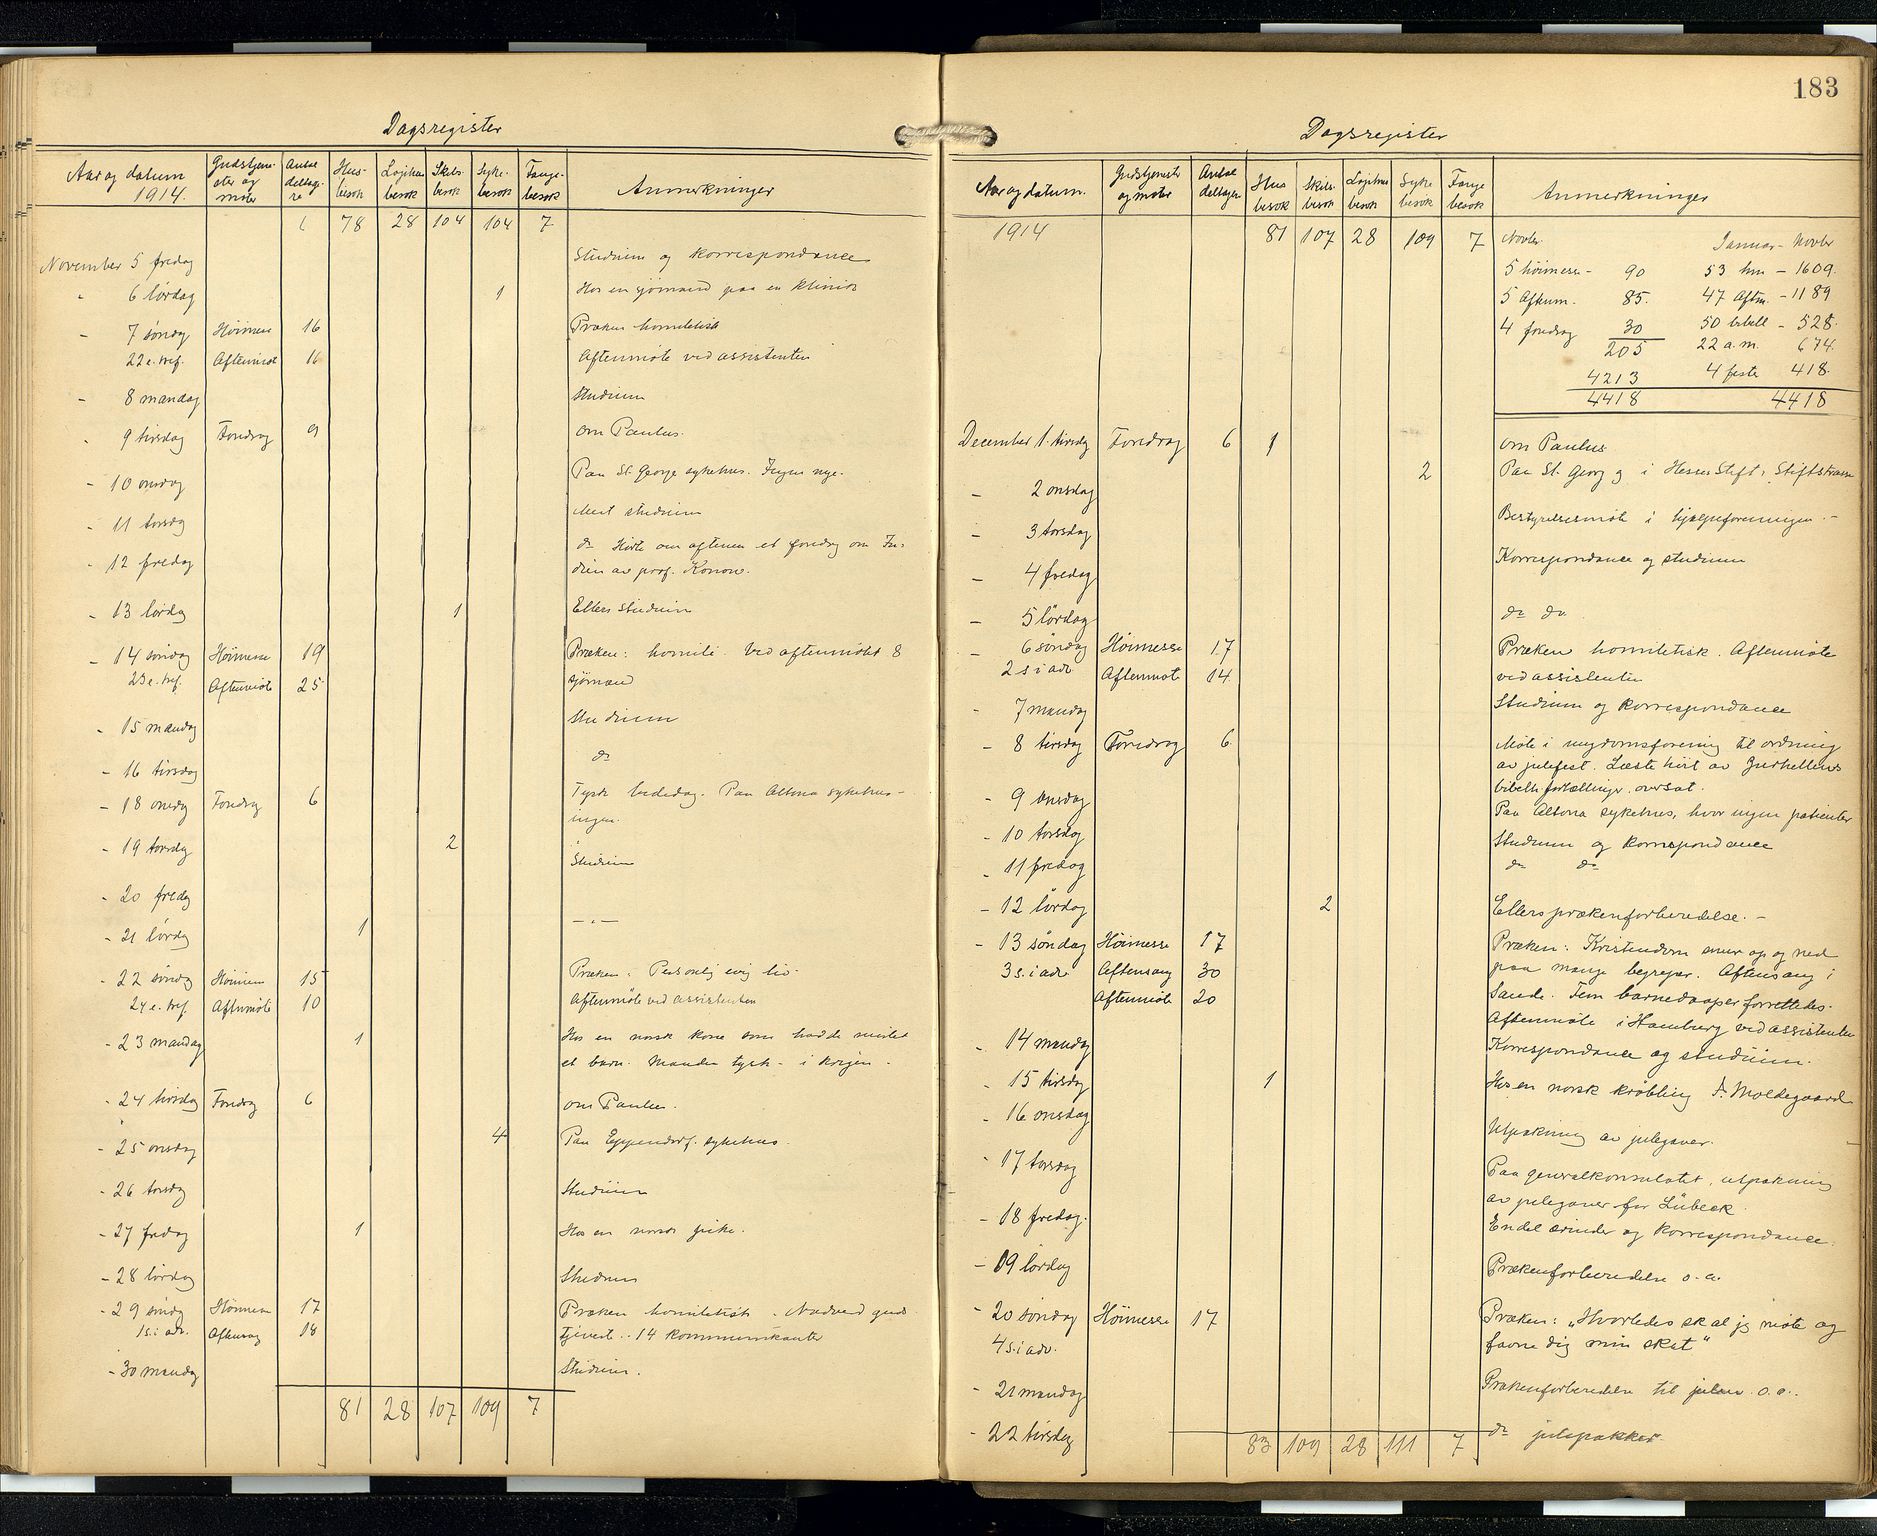 Dagsregister
Aar og datum 1914. Gudstjenester og møter Antal deltagere Husbesøk Logihusbesøk Skibsbesøk Sykebesøk Fangebesøk Anmerkninger
78 28 104 104 7
November 5 fredag Studium og korrespondance
" 6 lørdag 1 Hos en sjømand paa en klinik
- 7 søndag Høimesse 16 Præken homiletisk
22 e. tref. Aftenmøte 16 Aftenmøte ved assistenten
- 8 mandag Studium
- 9 tirsdag Foredrag 9 om Paulus.
- 10 onsdag Paa St. George sykehus. Ingen nye.
- 11 torsdag Mest studium
- 12 fredag do Hørte om aftenen et foredrag om In-
dien av prof. Konow.
- 13 lørdag 1 Ellers studium
- 14 søndag Høimesse 19 Præken: homili. Ved aftenmøtet 8
23 e. tref. Aftenmøte 25 sjømænd
- 15 mandag Studium
- 16 tirsdag do
- 18 onsdag Foredrag 6 Tysk bededag. Paa Altona sykehus -
ingen.
- 19 torsdag 2 Studium
- 20 fredag
- 21 lørdag 1 — " —
- 22 søndag Høimesse 15 Præken: Personlig evig liv.
24 e. tref. Aftenmøte 10 Aftenmøte ved assistenten
- 23 mandag 1 Hos en norsk kone som hadde mistet
et barn. Manden tysk - i krigen -
- 24 tirsdag Foredrag 6 om Paulus.
- 25 onsdag 4 Paa Eppendorf. sykehus.
- 26 torsdag Studium
- 27 fredag 1 Hos en norsk pike.
- 28 lørdag Studium
- 29 søndag Høimesse 17 Præken homiletisk. Nadverd guds
1 s. i adv. Aftensang 18 tjeneste. 14 kommunikanter
- 30 mandag Studium.
81 28 107 109 7
183
Dagsregister
Aar og datum. Gudstjenester og møter Antal deltagere Husbesøk Skibsbesøk Logihusbesøk Sykebesøk Fangebesøk Anmerkninger
1914 81 107 28 109 7 Novbr. Januar - Novbr
5 høimesse - 90 53 hm - 1609.
5 Aftenm. 85. 47 Aftm. - 1189
4 foredrag 30 50 bibell - 528.
205 22 a.m. 674.
4213 4 fester 418.
4418 4418
December 1. tirsdag Foredrag 6 1 om Paulus
- 2 onsdag 2 Paa St. Georg og i Hesses Stift, Stiftstrasse
- 3 torsdag Bestyrelsesmøte i hjælpeforeningen. -
- 4 fredag Korrespondance og studium
- 5 lørdag do do.
- 6 søndag Høimesse 17 Præken homiletisk. Aftenmøte
2 s i adv Aftenmøte 14 ved assistenten
- 7 mandag Studium og korrespondance
- 8 tirsdag Foredrag 6 Møte i ungdomsforening til ordning
av julefest. Læste høit av Zurhellens
bibelh. fortællinger oversat.
- 9 onsdag Paa Altona sykehus, hvor ingen patienter
- 10 torsdag Studium og korrespondance
- 11 fredag do do
- 12 lørdag 2 Ellers prækenforberedelse. -
- 13 søndag Høimesse 17 Præken: Kristendom snur op og ned
3 s. i adv Aftensang 30 paa mange begreper. Aftensang i
Aftenmøte 20 Sande. Fem barnedaaper forrettedes.
Aftenmøte i Hamburg ved assistenten
- 14 mandag Korrespondance og studium.
- 15 tirsdag 1 Hos en norsk krøbling A. Moldegaard
- 16 onsdag Utpakning av julegaver.
- 17 torsdag Paa generalkonsulatet, utpakning
av julegaver for Lübeck.
- 18 fredag. Endel ærinder og korrespondance.
- 19 lørdag Prækenforberedelse o. a.
- 20 søndag Høimesse 17 Præken: „Hvorledes skal jeg møte og
4 s. i adv. favne dig min skat."
- 21 mandag Prækenforberedelse til julen o. a..
- 22 tirsdag do julepakker.
83 109 28 111 7